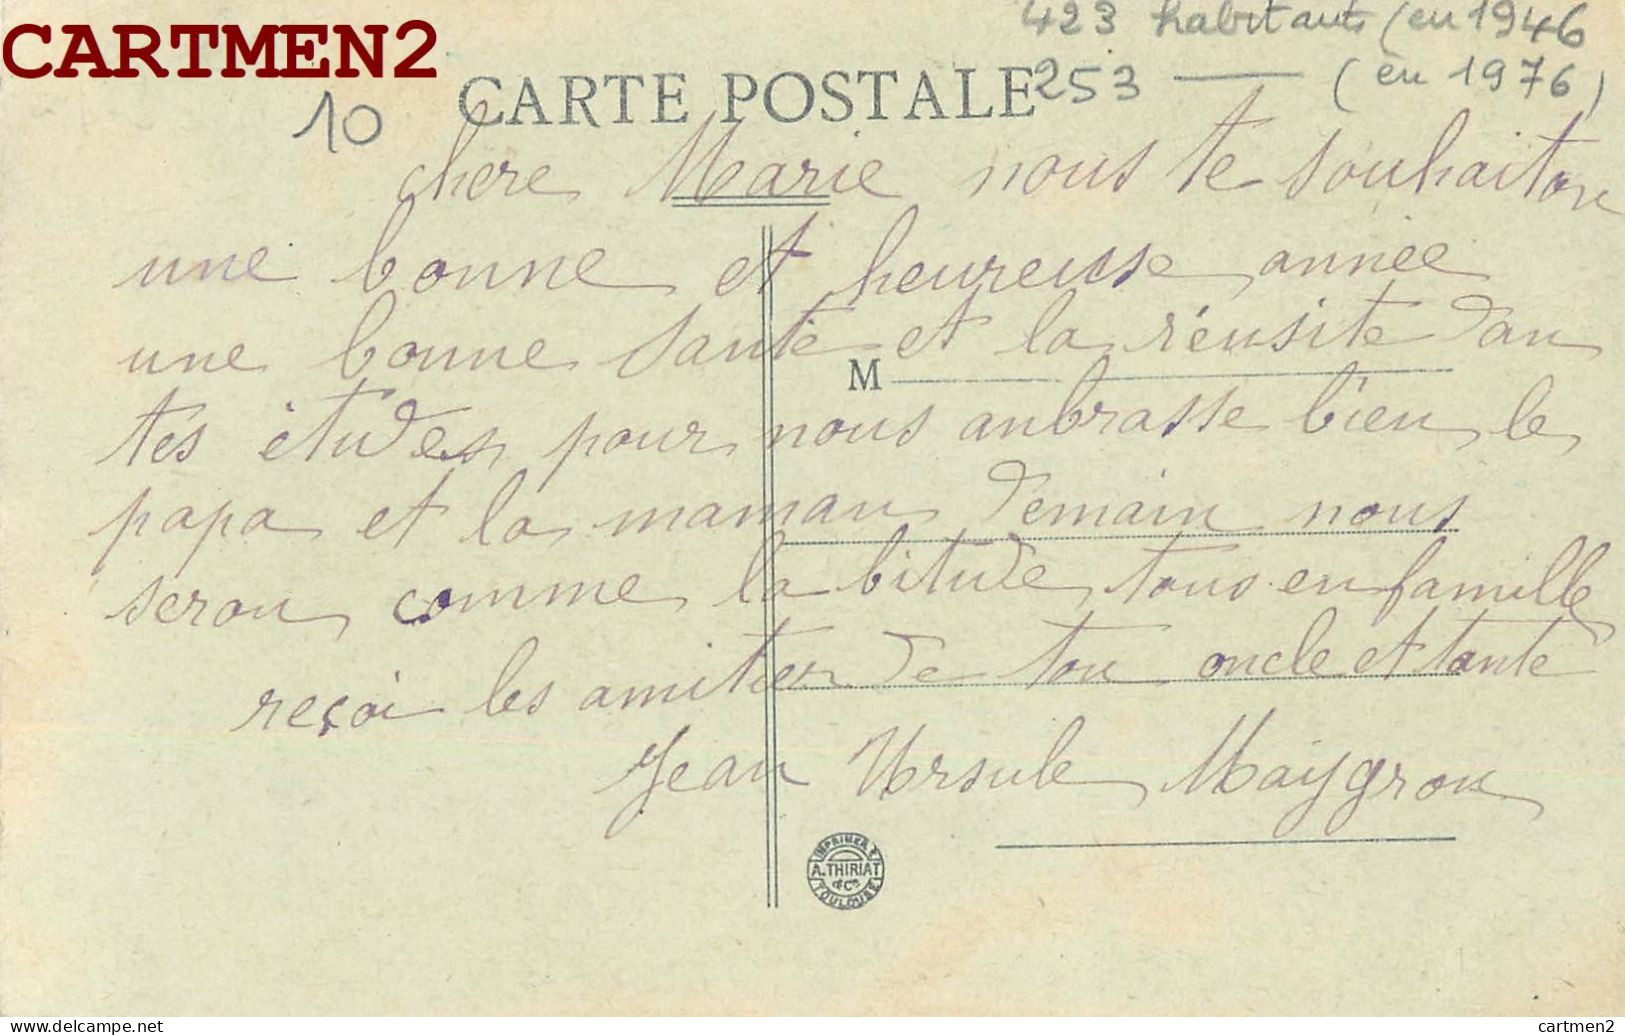 CARTMEN2
423 habitants (en 1946
253 — (en 1976)
10
CARTE POSTALE
chere Marie nous te souhaiton
une bonne et heureusse année
une bonne santé et la réusite dan
M
tés études pour nous anbrasse bien le
papa et la maman demain nous
seron comme la bitude tous en famille
reçoi les amitier de ton oncle et tante
Jean Ursule Maygron
IMPRIMERIE
A. THIRIAT
& Cie
TOULOUSE
www.delcampe.net
cartmen2